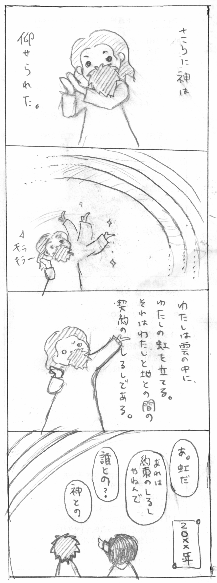 さらに神は
仰せられた。
キラ
キラー
わたしは雲の中に、
わたしの虹を立てる。
それはわたしと地との間の
契約のしるしである。
20××年
あ。虹だ
あれは
約束のしるし
やねんで
誰との?
神との